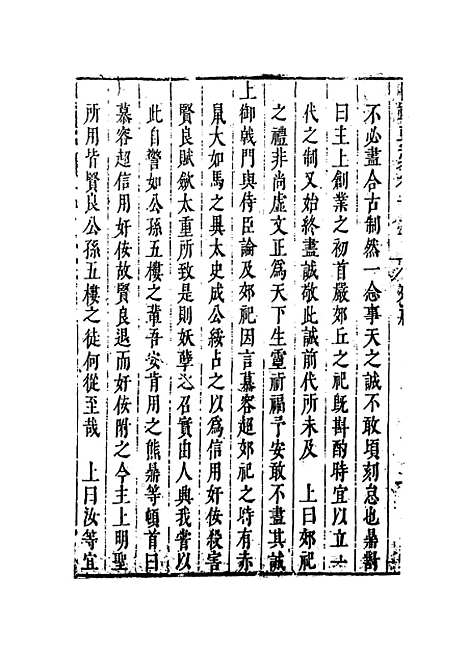 不必盡合古制然一念事天之誠不敢頃刻怠也鼎對
曰主上創業之初首嚴郊丘之祀旣斟酌時宜以立一
代之制又始終盡誠敬此誠前代所未及　上曰郊祀
之禮非尚虛文正爲天下生靈祈福予安敢不盡其誠
上御戟門與侍臣論及郊祀因言慕容超郊祀之時有赤
鼠大如馬之異太史成公綏占之以爲信用奸佞殺害
賢良賦斂太重所致是則妖孽之召實由人興我嘗以
此自警如公孫五樓之輩吾安肯用之熊鼎等頓首曰
慕容超信用奸佞故賢良退而奸佞附之今主上明聖
所用皆賢良公孫五樓之徒何從至哉　上曰汝等宜